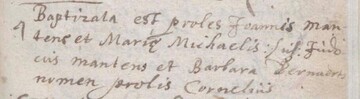 Baptizata est proles Joannis man-
tens et Mariæ Michaelis: sus. Judo-
cus mantens et Barbara Bernaerts
nomen prolis Cornelius